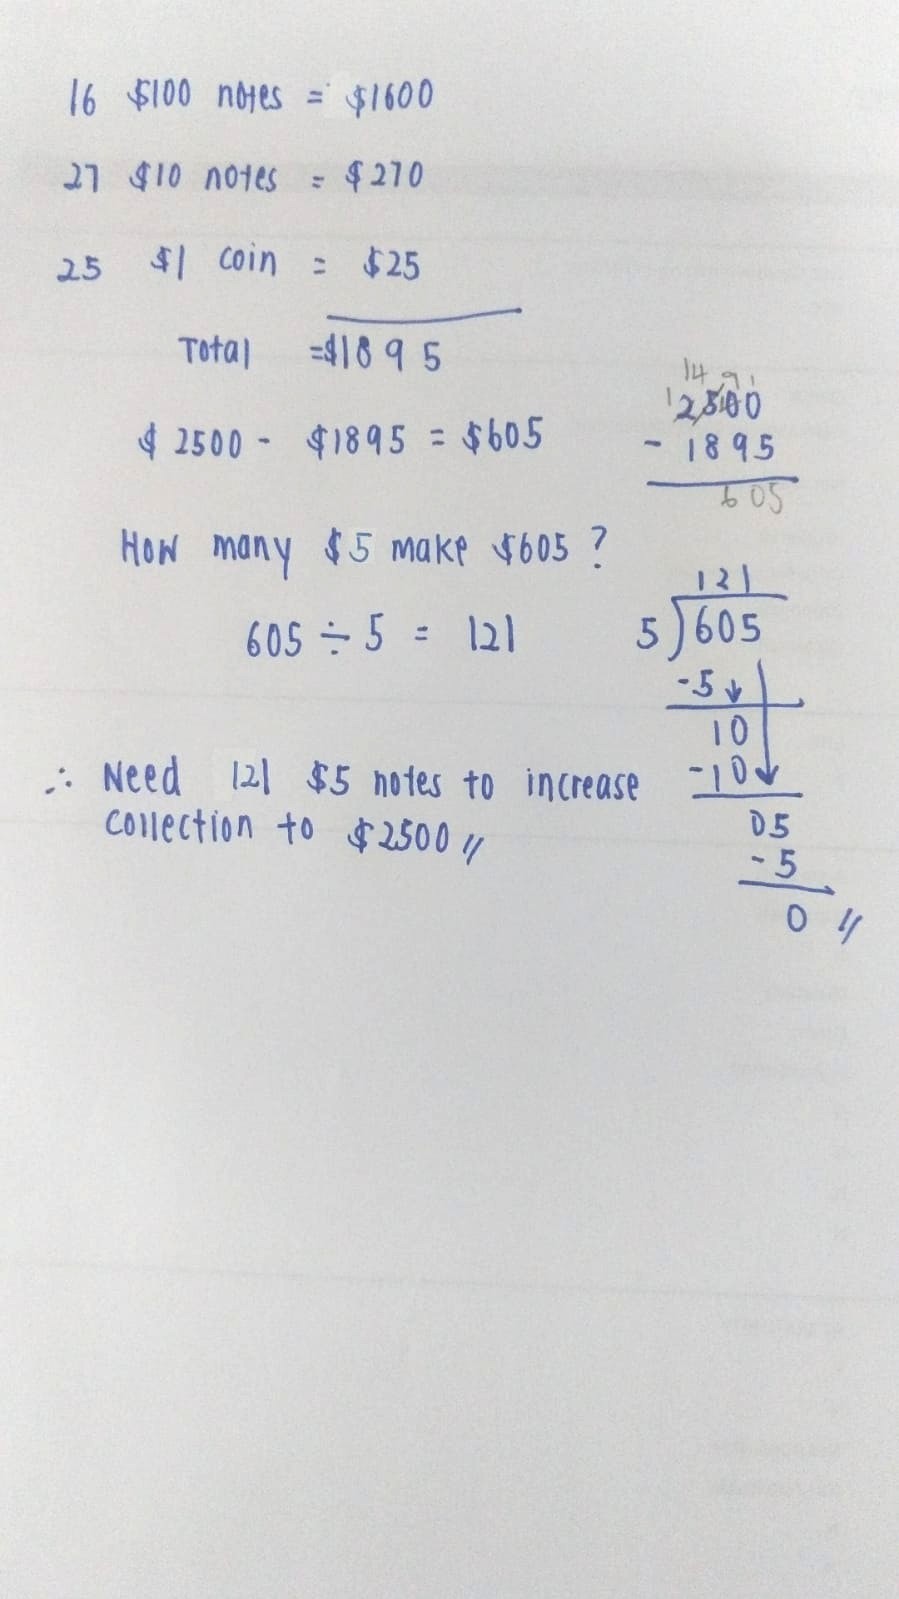 16 $100 notes = $1600
27 $10 notes = $270
25 $1 coin = $25
Total =$1895
14 9 1
1 2500
- 1895
605
$ 2500 - $1895 = $605
How many $5 make $605 ?
605 ÷ 5 = 121
121
5 ) 605
-5 ↓
10
-10 ↓
05
-5
0 //
∴ Need 121 $5 notes to increase
collection to $2500 //